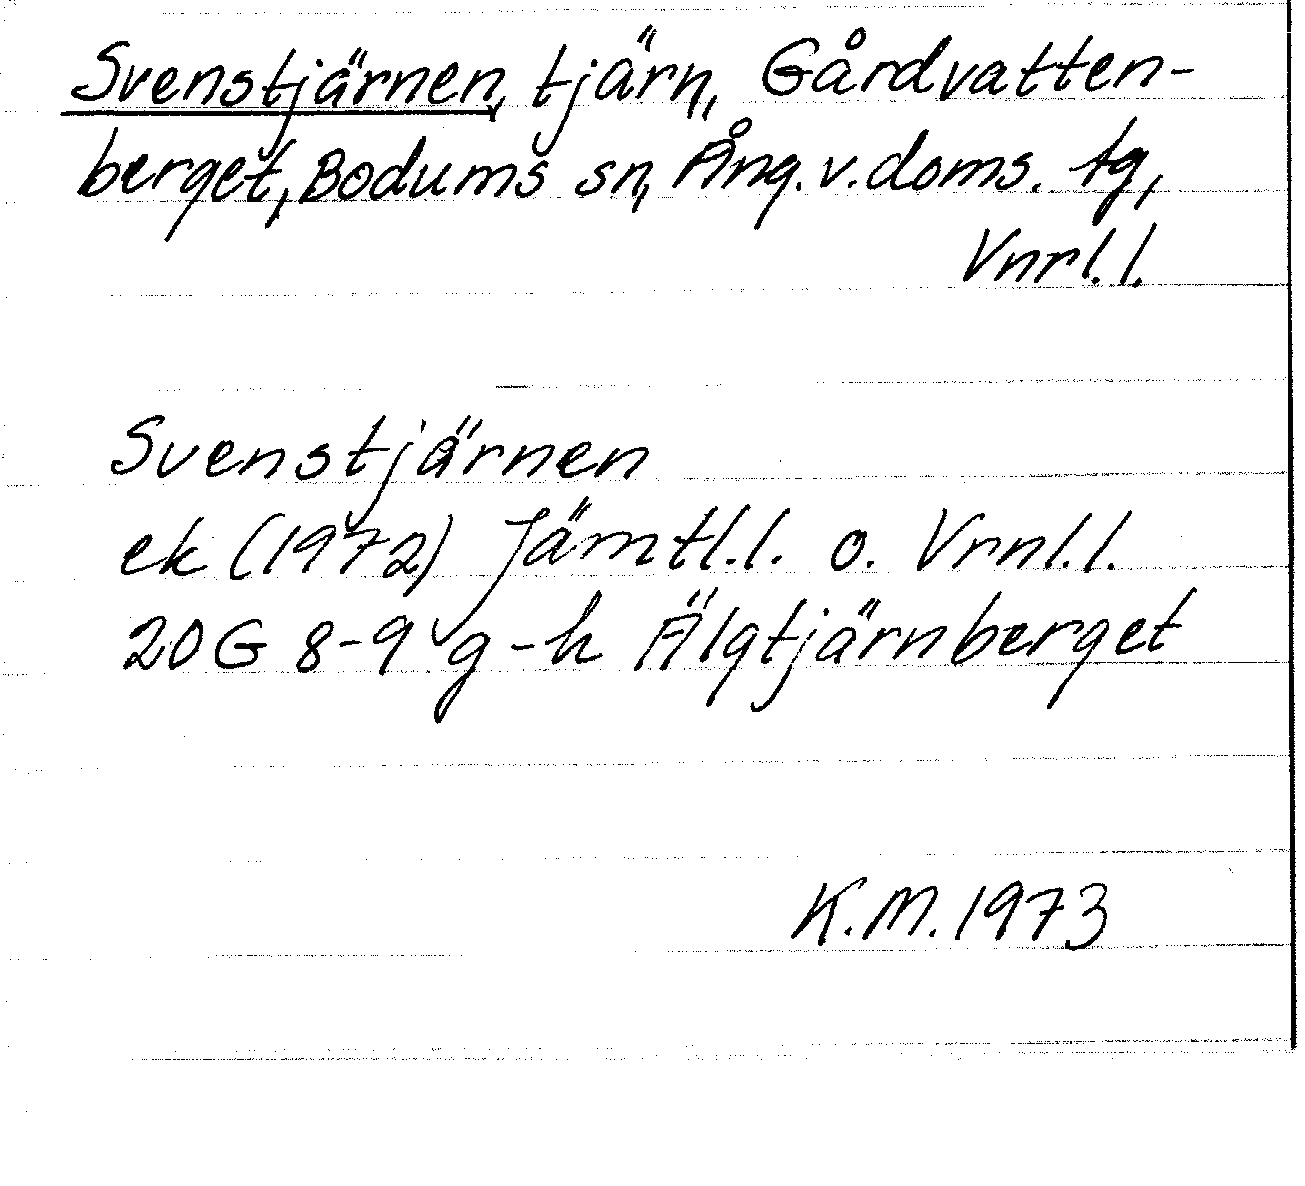 Svenstjärnen, tjärn, Gårdvatten-
berget, Bodums sn, Ång. v. doms. tg,
Vnrl.l.
Svenstjärnen
ek (1972) Jämtl.l. o. Vrnl.l.
20G 8-9 g-h Älgtjärnberget
K.M. 1973